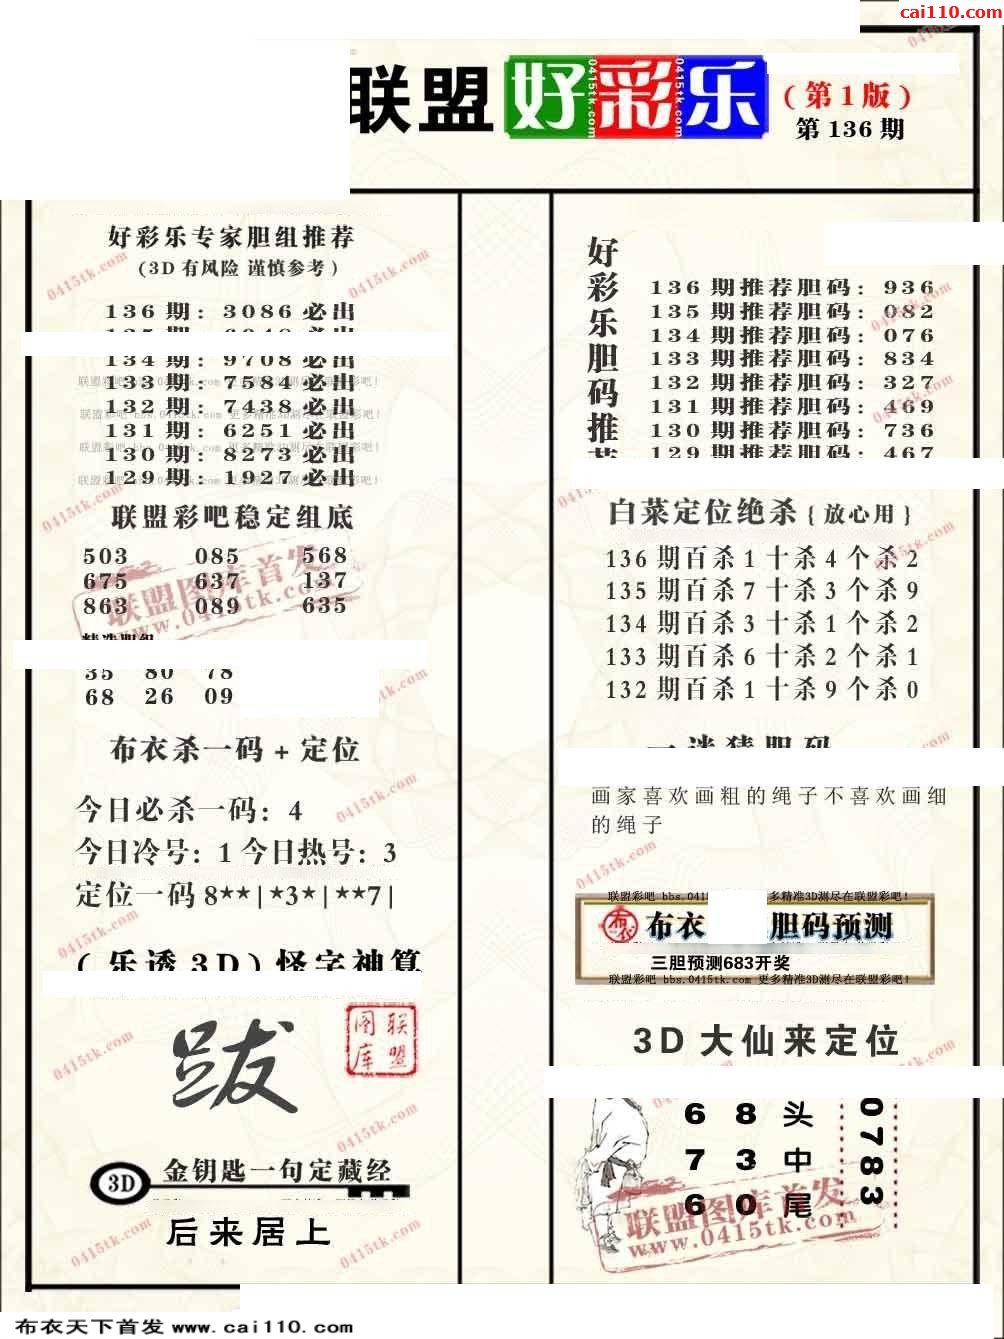 cai110.com
联盟 好彩乐 (第1版)
第 136 期
好彩乐专家胆组推荐
(3D有风险 谨慎参考)
136 期: 3086 必出
134 期: 9708 必出
133 期: 7584 必出
132 期: 7438 必出
131 期: 6251 必出
130 期: 8273 必出
129 期: 1927 必出
联盟彩吧稳定组底
503 085 568
675 637 137
863 089 635
35 80 78
68 26 09
布衣杀一码 + 定位
今日必杀一码: 4
今日冷号: 1 今日热号: 3
定位一码 8**|*3*|**7|
(乐透 3D) 怪字神算
跋
联盟图库
3D 金钥匙一句定藏经
后来居上
好彩乐胆码推
136 期推荐胆码: 936
135 期推荐胆码: 082
134 期推荐胆码: 076
133 期推荐胆码: 834
132 期推荐胆码: 327
131 期推荐胆码: 469
130 期推荐胆码: 736
129 期推荐胆码: 467
白菜定位绝杀{放心用}
136 期百杀 1 十杀 4 个杀 2
135 期百杀 7 十杀 3 个杀 9
134 期百杀 3 十杀 1 个杀 2
133 期百杀 6 十杀 2 个杀 1
132 期百杀 1 十杀 9 个杀 0
一谜猜胆码
画家喜欢画粗的绳子不喜欢画细
的绳子
布衣 布衣 胆码预测
三胆预测683开奖
联盟彩吧 bbs.0415tk.com 更多精准3D测尽在联盟彩吧!
3D 大仙来定位
6 8 头
7 3 中
6 0 尾
0783
联盟图库首发
www.0415tk.com
布衣天下首发 www.cai110.com